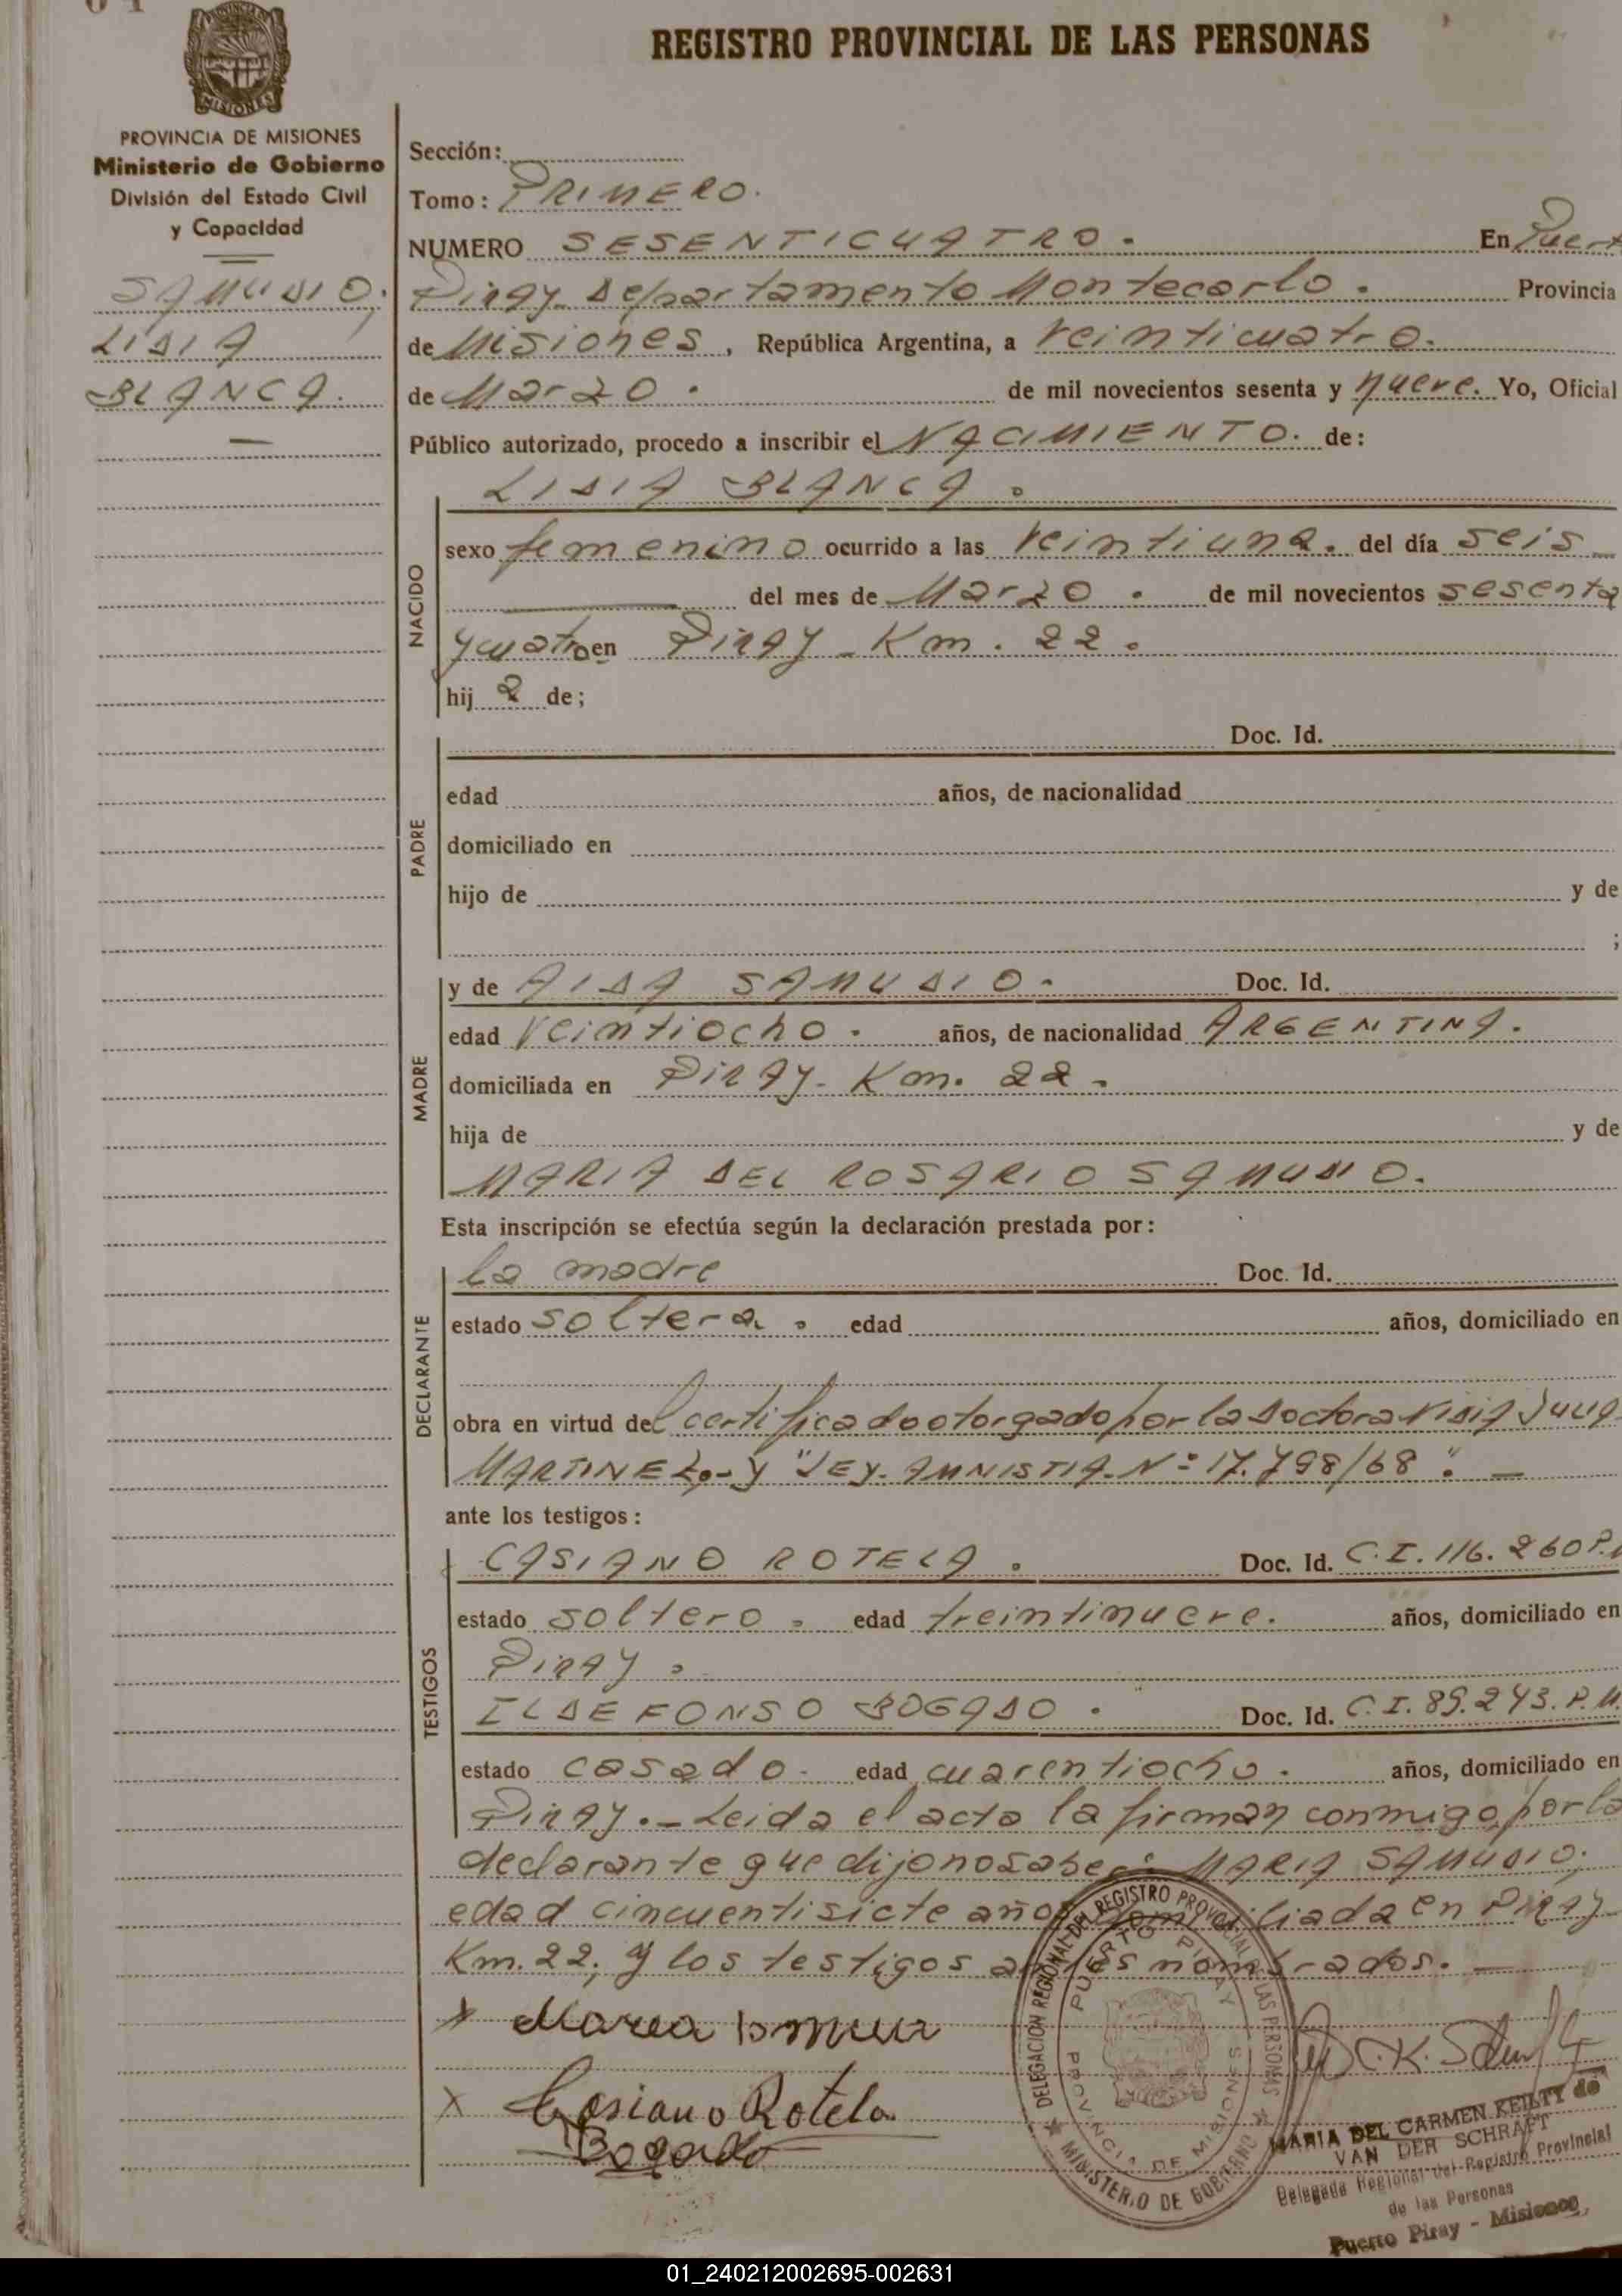 REGISTRO PROVINCIAL DE LAS PERSONAS
MISIONES
PROVINCIA DE MISIONES
Ministerio de Gobierno
División del Estado Civil
y Capacidad
SAMUDIO,
LIDIA
BLANCA.
Sección:
Tomo: PRIMERO.
NUMERO SESENTICUATRO. En Puert
Piray. Departamento Montecarlo. Provincia
de Misiones, República Argentina, a veinticuatro.
de Marzo. de mil novecientos sesenta y nueve. Yo, Oficial
Público autorizado, procedo a inscribir el NACIMIENTO. de:
NACIDO
LIDIA BLANCA.
sexo femenino ocurrido a las veintiuna. del día seis
del mes de Marzo. de mil novecientos sesenta
y cuatro en Piray - Km. 22.
hij a de;
PADRE
Doc. Id.
edad años, de nacionalidad
domiciliado en
hijo de y de
;
MADRE
y de AIDA SAMUDIO. Doc. Id.
edad veintiocho. años, de nacionalidad ARGENTINA.
domiciliada en Piray - Km. 22.
hija de y de
MARIA DEL ROSARIO SAMUDIO.
Esta inscripción se efectúa según la declaración prestada por:
DECLARANTE
la madre Doc. Id.
estado soltera. edad años, domiciliado en
obra en virtud del certificado otorgado por la Doctora
MARTINEZ.- y "LEY. AMNISTIA. Nº 17.798/68".
ante los testigos:
TESTIGOS
CASIANO ROTELA. Doc. Id. C.I. 116.260 P.
estado soltero. edad treintinueve. años, domiciliado en
Piray.
ILDEFONSO BOGADO. Doc. Id. C.I. 89.243. P.M.
estado casado. edad cuarentiocho. años, domiciliado en
Piray.- Leida el acta la firman conmigo, por la
declarante que dijo no saber: MARIA SAMUDIO;
edad cincuentisiete años domiciliada en Piray
Km. 22; y los testigos antes nombrados.
x Maria
x Casiano Rotela
Bogado
DELEGACION REGIONAL DEL REGISTRO PROVINCIAL DE LAS PERSONAS
MINISTERIO DE GOBIERNO
PUERTO PIRAY
PROVINCIA DE MISIONES
MARIA DEL CARMEN KEILTY de
VAN DER SCHRAFT
Delegada Regional del Registro Provincial
de las Personas
Puerto Piray - Misiones
01_240212002695-002631